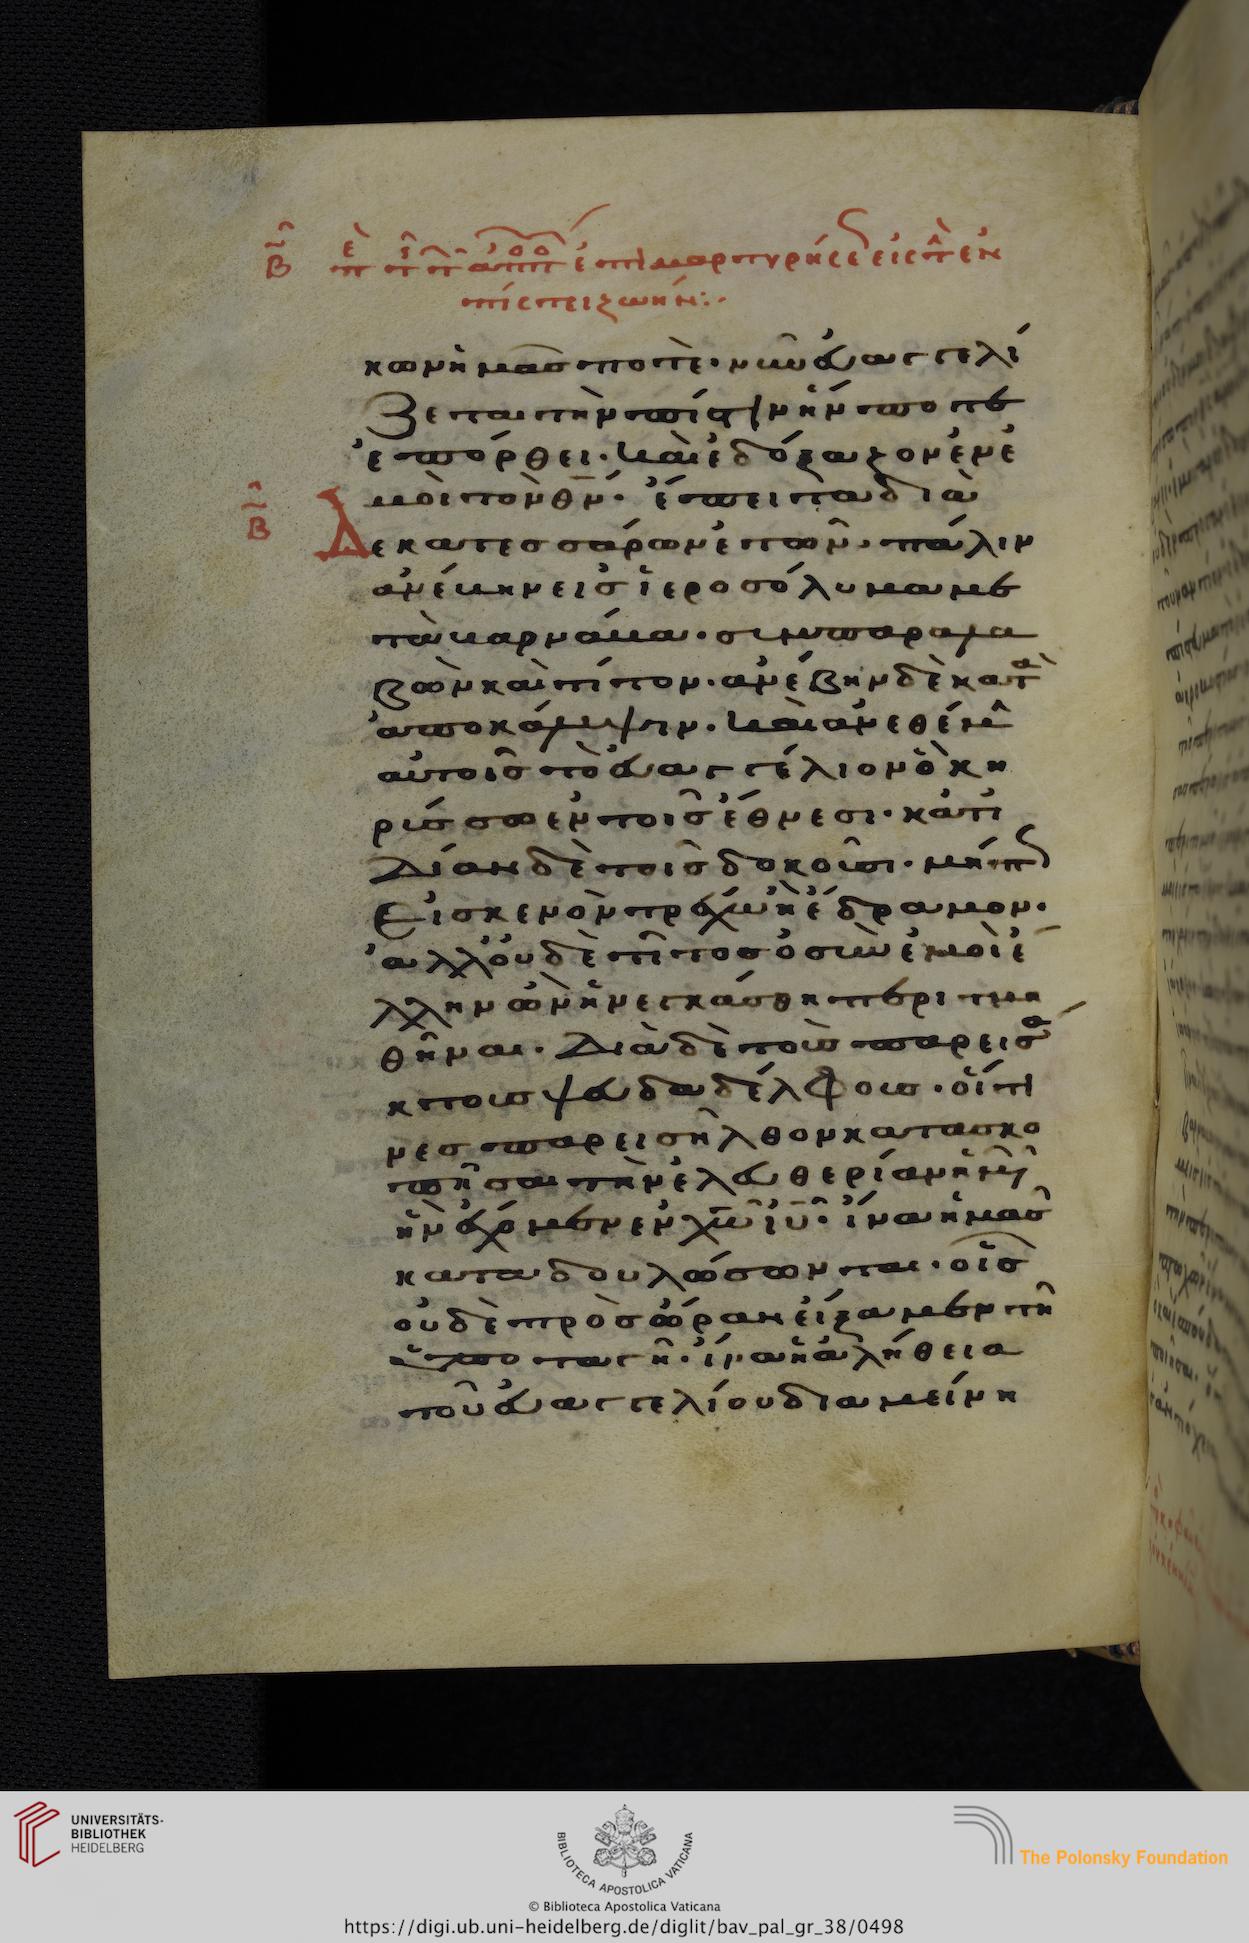 κων ἡμᾶς ποτὲ· νῦν εὐαγγελί
ζεται τὴν πίστιν ἥν ποτε
ἐπόρθει· καὶ ἐδόξαζον ἐν ἐ
μοὶ τὸν θν̄· ἔπειτα διὰ
Δεκατεσσάρων ἐτῶν· πάλιν
ἀνέβην εἰς ἱεροσόλυμα με
τὰ βαρνάβα· συμπαραλα
βὼν καὶ τίτον· ἀνέβην δὲ κατὰ
ἀποκάλυψιν· καὶ ἀνεθέμην
αὐτοῖς τὸ εὐαγγέλιον ὃ κη
ρύσσω ἐν τοῖς ἔθνεσι· κατ' ἰ
δίαν δὲ τοῖς δοκοῦσι· μήπως
εἰς κενὸν τρέχω ἢ ἔδραμον·
ἀλλ' οὐδὲ τίτος ὁ σὺν ἐμοὶ ἕ
λλην ὢν ἠναγκάσθη περιτμη
θῆναι· Διὰ δὲ τοὺς παρεισά
κτους ψευδαδέλφους· οἵτι
νες παρεισῆλθον κατασκο
πῆσαι τὴν ἐλευθερίαν ἡμῶν
ἣν ἔχομεν ἐν χω̄ ιῡ· ἵνα ἡμᾶς
καταδουλώσωνται· οἷς
οὐδὲ πρὸς ὥραν εἴξαμεν τῇ
ὑποταγῇ· ἵνα ἡ ἀλήθεια
τοῦ εὐαγγελίου διαμείνῃ
UNIVERSITÄTS-
BIBLIOTHEK
HEIDELBERG
BIBLIOTECA APOSTOLICA VATICANA
The Polonsky Foundation
© Biblioteca Apostolica Vaticana
https://digi.ub.uni-heidelberg.de/diglit/bav_pal_gr_38/0498